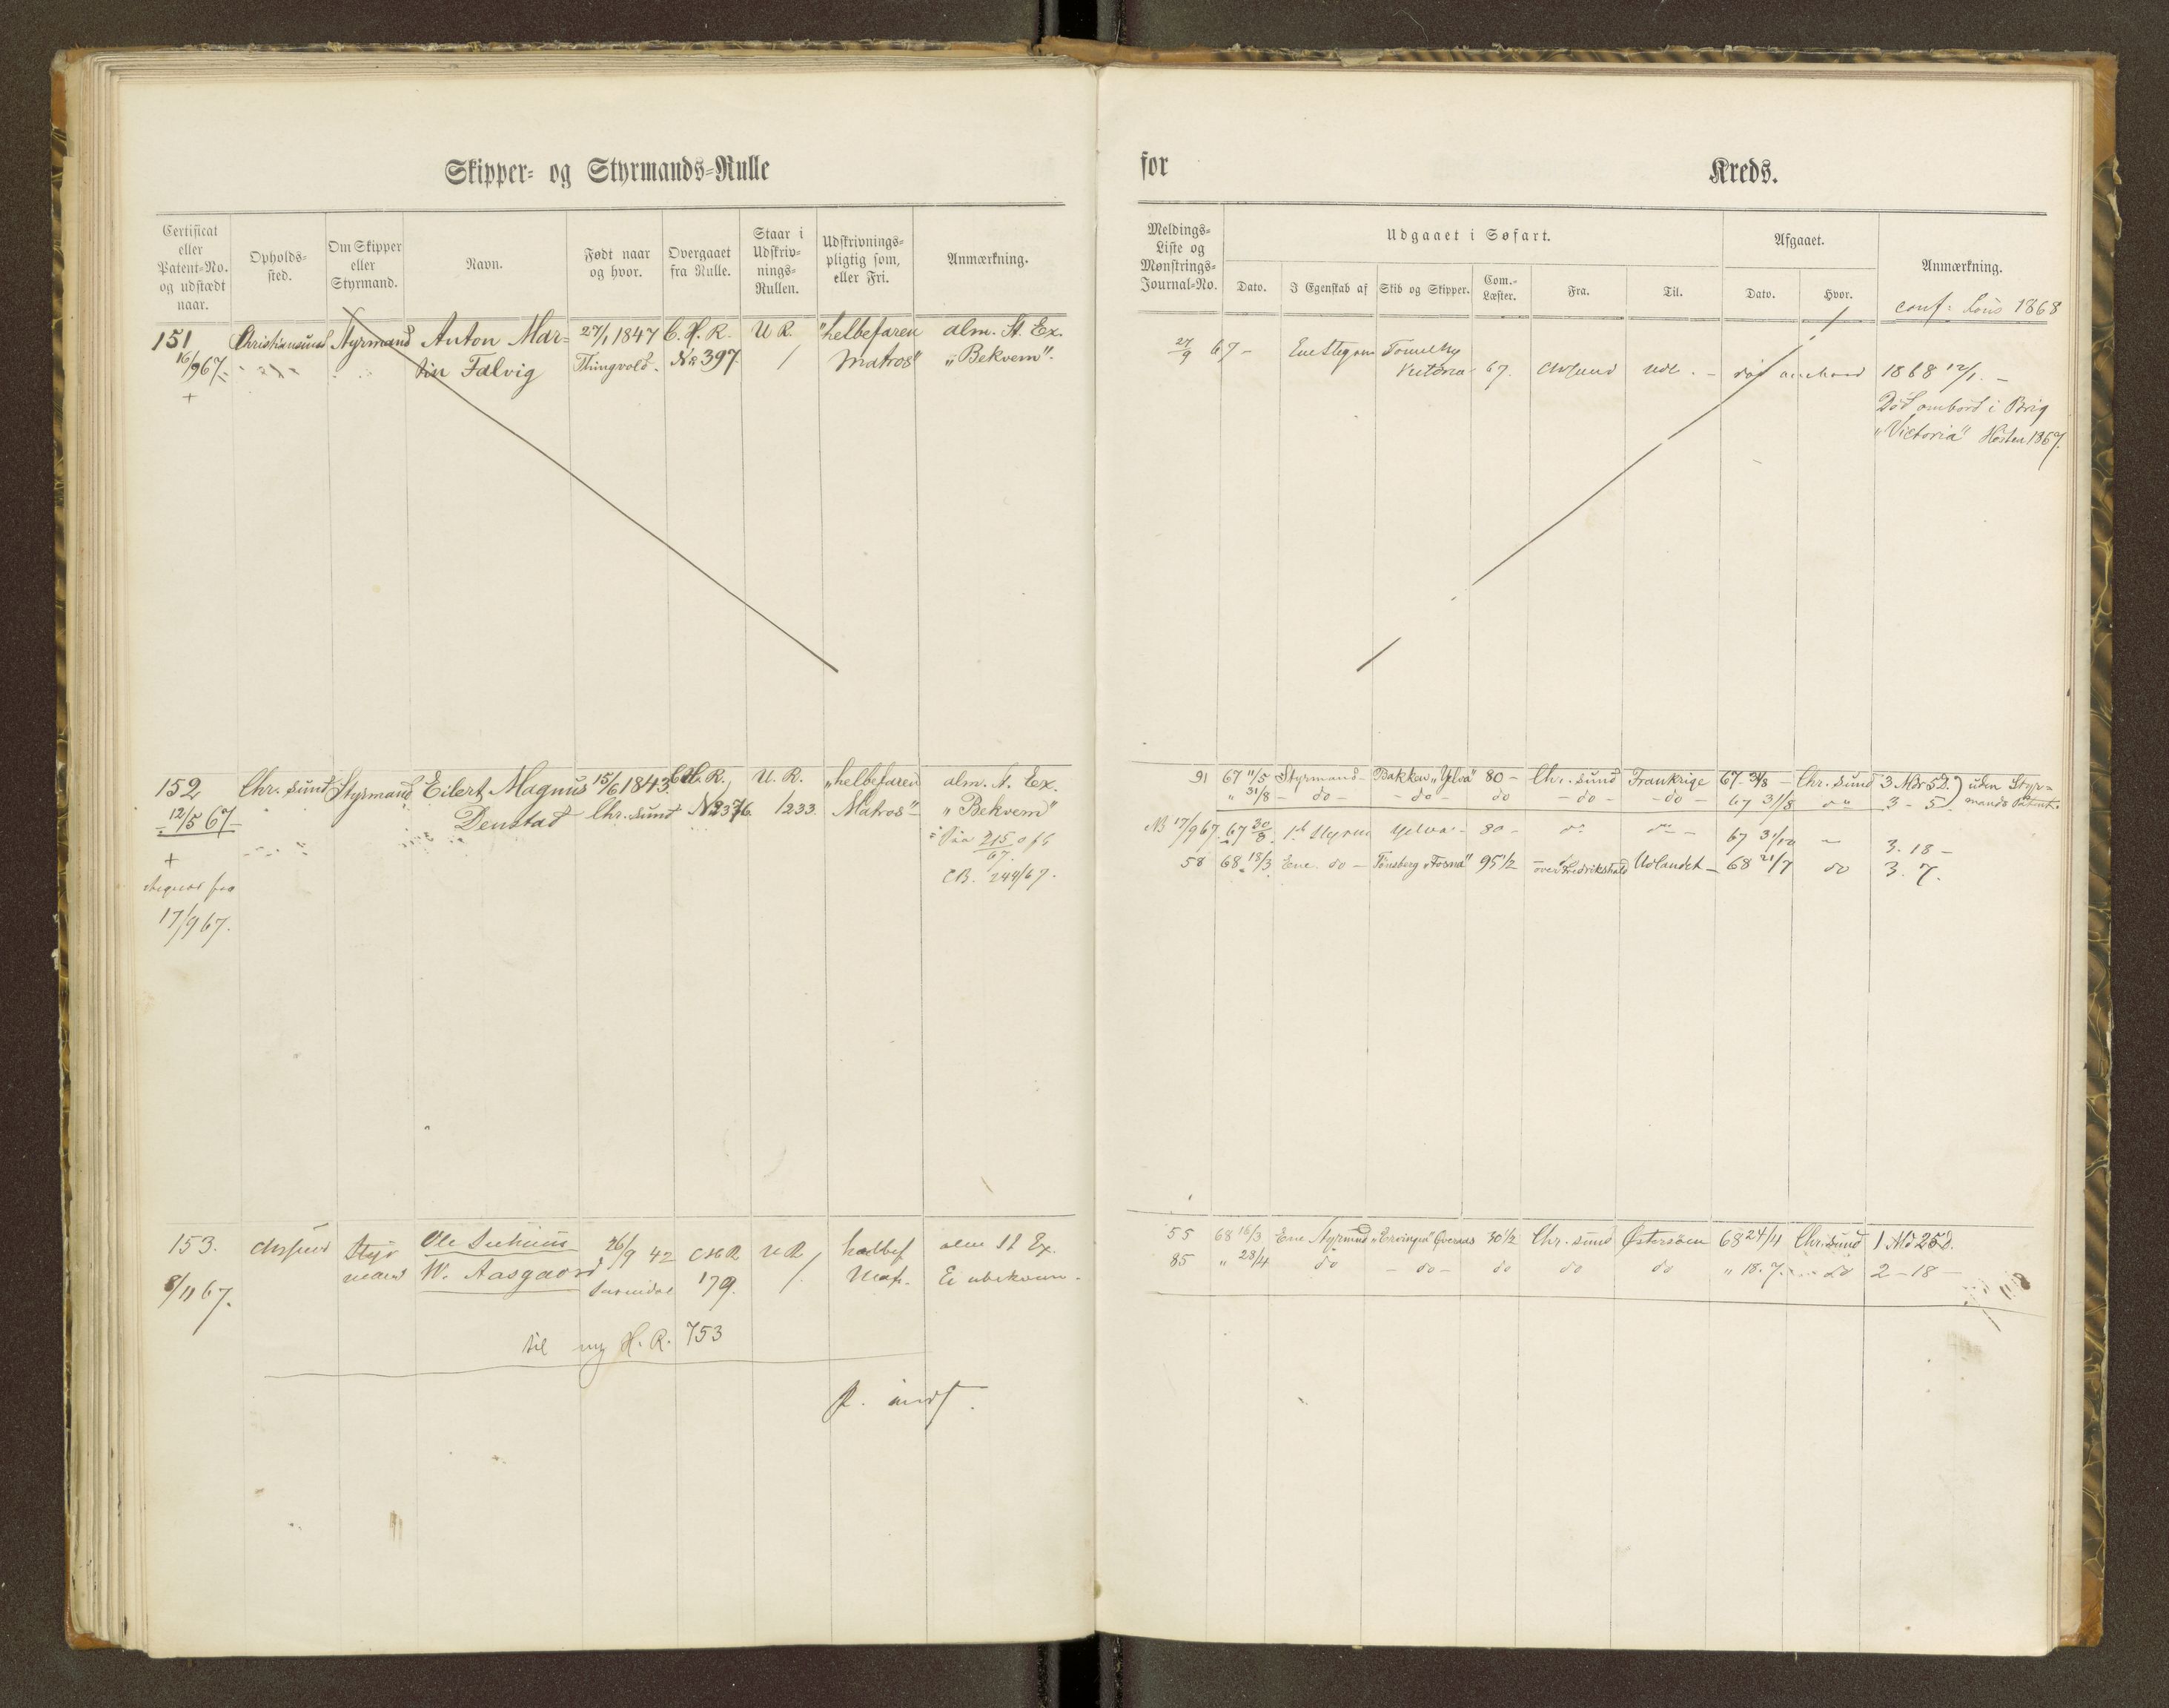 Skipper- og Styrmands-Rulle
Certificat eller Patent-No. og udstædt naar.
Opholds-sted.
Om Skipper eller Styrmand.
Navn.
Født naar og hvor.
Overgaaet fra Rulle.
Staar i Udskriv-nings-Rullen.
Udskrivnings-pligtig som, eller Fri.
Anmærkning.
151 Christiansund Styrmand Anton Mar- 27/1 1847 C. H. R. U R. "helbefaren alm. St. Ex.
16/9 67. tin Falvig Thingvold. No 397. / Matros" "Bekvem".
+
152 Chr. sund Styrmand Eilert Magnus 15/6 1843. C.H.R. U. R. "helbefaren alm. St. Ex.
12/5 67 Denstad Chr. sund No 2376. 1233. Matros" "Bekvem"
+ 215
67.
fra CB. 244/67.
17/9 67.
153. Chrsund Styr Ole 26/9 42 CHR UR halbef alm St Ex.
8/11 67. mand W. Aasgaard Surendal 179. / Matr. Ei ubekvem.
til ny H. R. 753
for Kreds.
Meldings-Liste og Mønstrings-Journal-No.
Udgaaet i Søfart.
Dato.
I Egenskab af
Skib og Skipper.
Com.-Læster.
Fra.
Til.
Afgaaet.
Dato.
Hvor.
Anmærkning.
conf: 1868
27/9 67 -
Victoria 67. Chrsund Udl. - død ombord 1868 12/1. -
Død ombord i Brig
"Victoria" Høsten 1867.
91 67 11/5 Styrmand - Bakken "Ydva" 80 - Chr. sund Frankrige 67 31/8 - Chr. sund 3 Mdr 5 D.) uden Styr=
" 31/8 - do - - do - do - do - - do - 67 31/8 do 3 - 5. mands Patent.
NB 17/9 67. 67 30/8. 80 - do do - 67 31/12 - 3. 18 -
58 68. 18/3 Ene do - Tønsberg "Fosna" 95 1/2 over Fredrikshald Udlandet - 68 21/7 do 3. 7.
55 68 16/3 Ene Styrmnd "Ervingen" Øveraas 30 1/2 Chr. sund Østersøen 68 24/4 Chr. sund 1 Md 25 D.
85 " 28/4 do - do - do do do " 18. 7. do 2 - 18 -